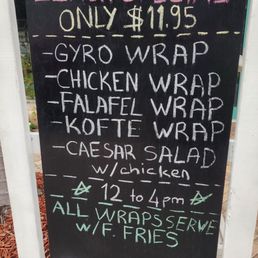 ONLY $11.95
-GYRO WRAP
-CHICKEN WRAP
-FALAFEL WRAP
-KOFTE WRAP
-CAESAR SALAD
w/chicken
12 to 4pm
ALL WRAPS SERVE
W/F. FRIES